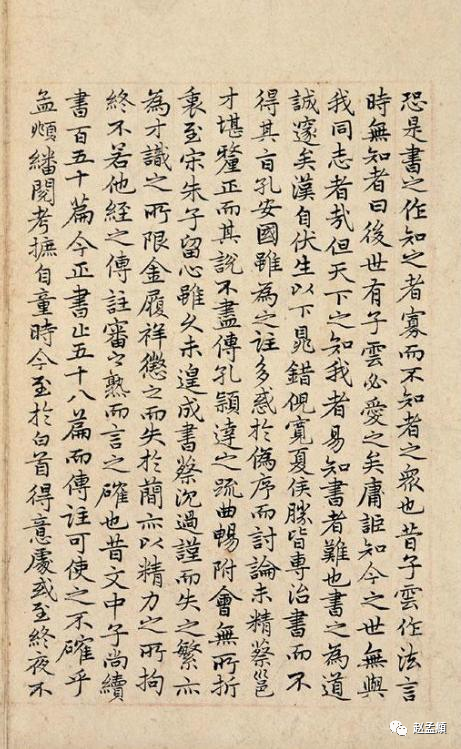 恐是書之作知之者寡而不知者之衆也昔子雲作法言
時無知者曰後世有子雲必愛之矣庸詎知今之世無與
我同志者㢤但天下之知我者易知書者難也書之為道
誠邃矣漢自伏生以下晁錯倪寬夏侯勝皆專治書而不
得其旨孔安國雖為之註多惑於偽序而討論未精蔡邕
才堪釐正而其說不盡傳孔穎達之疏曲暢附會無所折
衷至宋朱子留心雖久未遑成書蔡沈過謹而失之繁亦
為才識之所限金履祥懲之而失於簡亦以精力之所拘
終不若他經之傳註審之熟而言之確也昔文中子尚續
書百五十篇今正書止五十八篇而傳註可使之不確乎
孟頫繙閱考摭自童時今至於白首得意處或至終夜不
赵孟頫